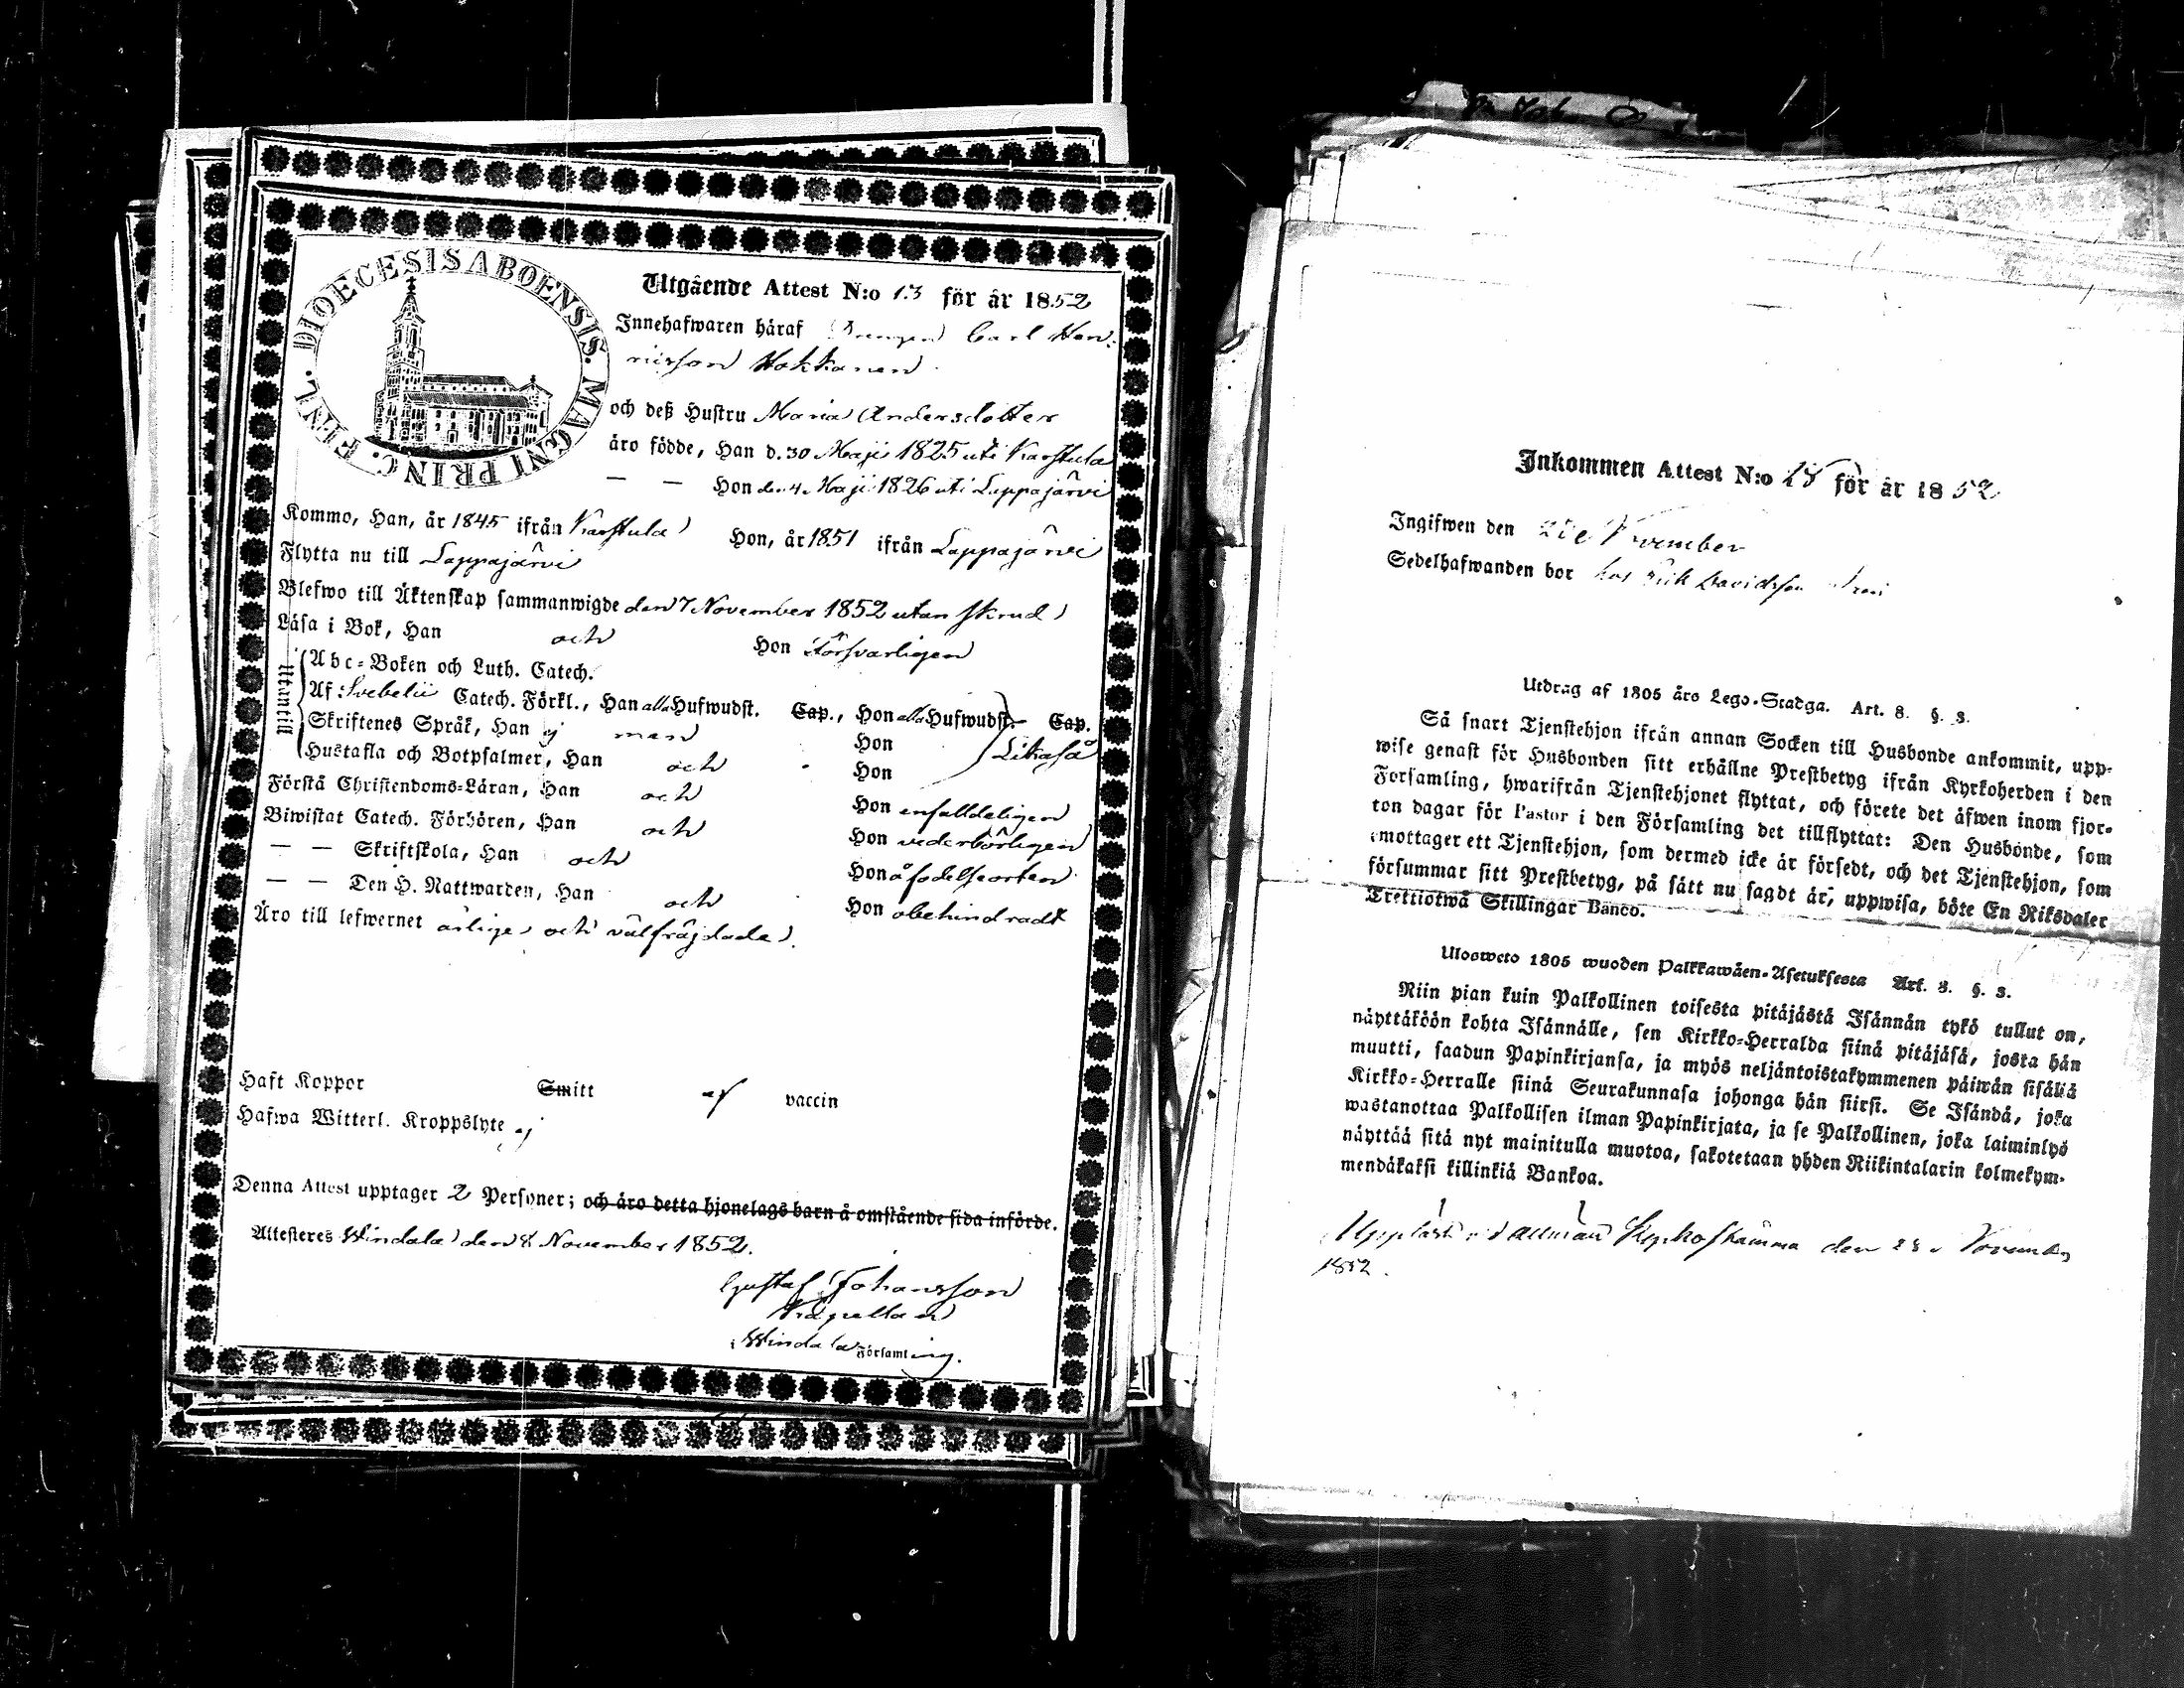 DIOECESIS ABOENSIS. MAGNI PRINC. FINL.
Utgående Attest N:o 13 för år 1852
Innehafwaren häraf Drengen Carl Hen-
ricsson Hokkanen
och deß Hustru Maria Andersdotter
äro födde, Han d. 30 Maji 1825 uti Karstula
— — Hon den 4 Maji 1826 uti Lappajärvi
Kommo, Han, år 1845 ifrån Karstula Hon, år 1851 ifrån Lappajärvi
Flytta nu till Lappajärvi
Blefwo till Äktenskap sammanwigde den 7 November 1852 utan skrud
Läsa i Bok, Han och Hon försvarligen
Utantill
Abc-Boken och Luth. Catech.
Af Svebelii Catech. Förkl., Han alla Hufwudst. Cap., Hon alla Hufwudst. Cap.
Skriftenes Språk, Han ej men Hon
Hustafla och Botpsalmer, Han och Hon Likaså
Förstå Christendoms-Läran, Han och Hon enfalldeligen
Biwistat Catech. Förhören, Han och Hon vederbörligen
— — Skriftskola, Han och Hon å födelseorten
— — Den H. Nattwarden, Han och Hon obehindradt
Äro till lefwernet ärlige och välfräjdade.
Haft Koppor Smitt af vaccin
Hafwa Witterl. Kroppslyte ej
Denna Attest upptager 2 Personer; och äro detta hjonelags barn å omstående sida införde.
Attesteres Windala den 8 November 1852.
Gustaf Johansson
Kapellan
Windala Församling.
Inkommen Attest N:o för år 1852
Ingifwen den November
Sedelhafwanden bor hos Erik Davidsson
Utdrag af 1805 års Lego-Stadga. Art. 8. §. 3.
Så snart Tjenstehjon ifrån annan Socken till Husbonde ankommit, upp-
wise genast för Husbonden sitt erhållne Prestbetyg ifrån Kyrkoherden i den
Församling, hwarifrån Tjenstehjonet flyttat, och förete det äfwen inom fjor-
ton dagar för Pastor i den Församling det tillflyttat: Den Husbonde, som
emottager ett Tjenstehjon, som dermed icke är försedt, och det Tjenstehjon, som
försummar sitt Prestbetyg, på sätt nu sagdt är, uppwisa, böte En Riksdaler
Trettiotwå Skillingar Banco.
Ulosweto 1805 wuoden Palkkawäen-Asetuksesta Art. 8. §. 3.
Niin pian kuin Palkollinen toisesta pitäjästä Isännän tykö tullut on,
näyttäköön kohta Isännälle, sen Kirkko-Herralda siinä pitäjäsä, josta hän
muutti, saadun Papinkirjansa, ja myös neljäntoistakymmenen päiwän sisällä
Kirkko-Herralle siinä Seurakunnasa johonga hän siirsi. Se Isändä, joka
wastanottaa Palkollisen ilman Papinkirjata, ja se Palkollinen, joka laiminlyö
näyttää sitä nyt mainitulla muotoa, sakotetaan yhden Riikintalarin kolmekym-
mendäkaksi killinkiä Bankoa.
Uppläst vid allmän Kyrkostämma den 28 November
1852.